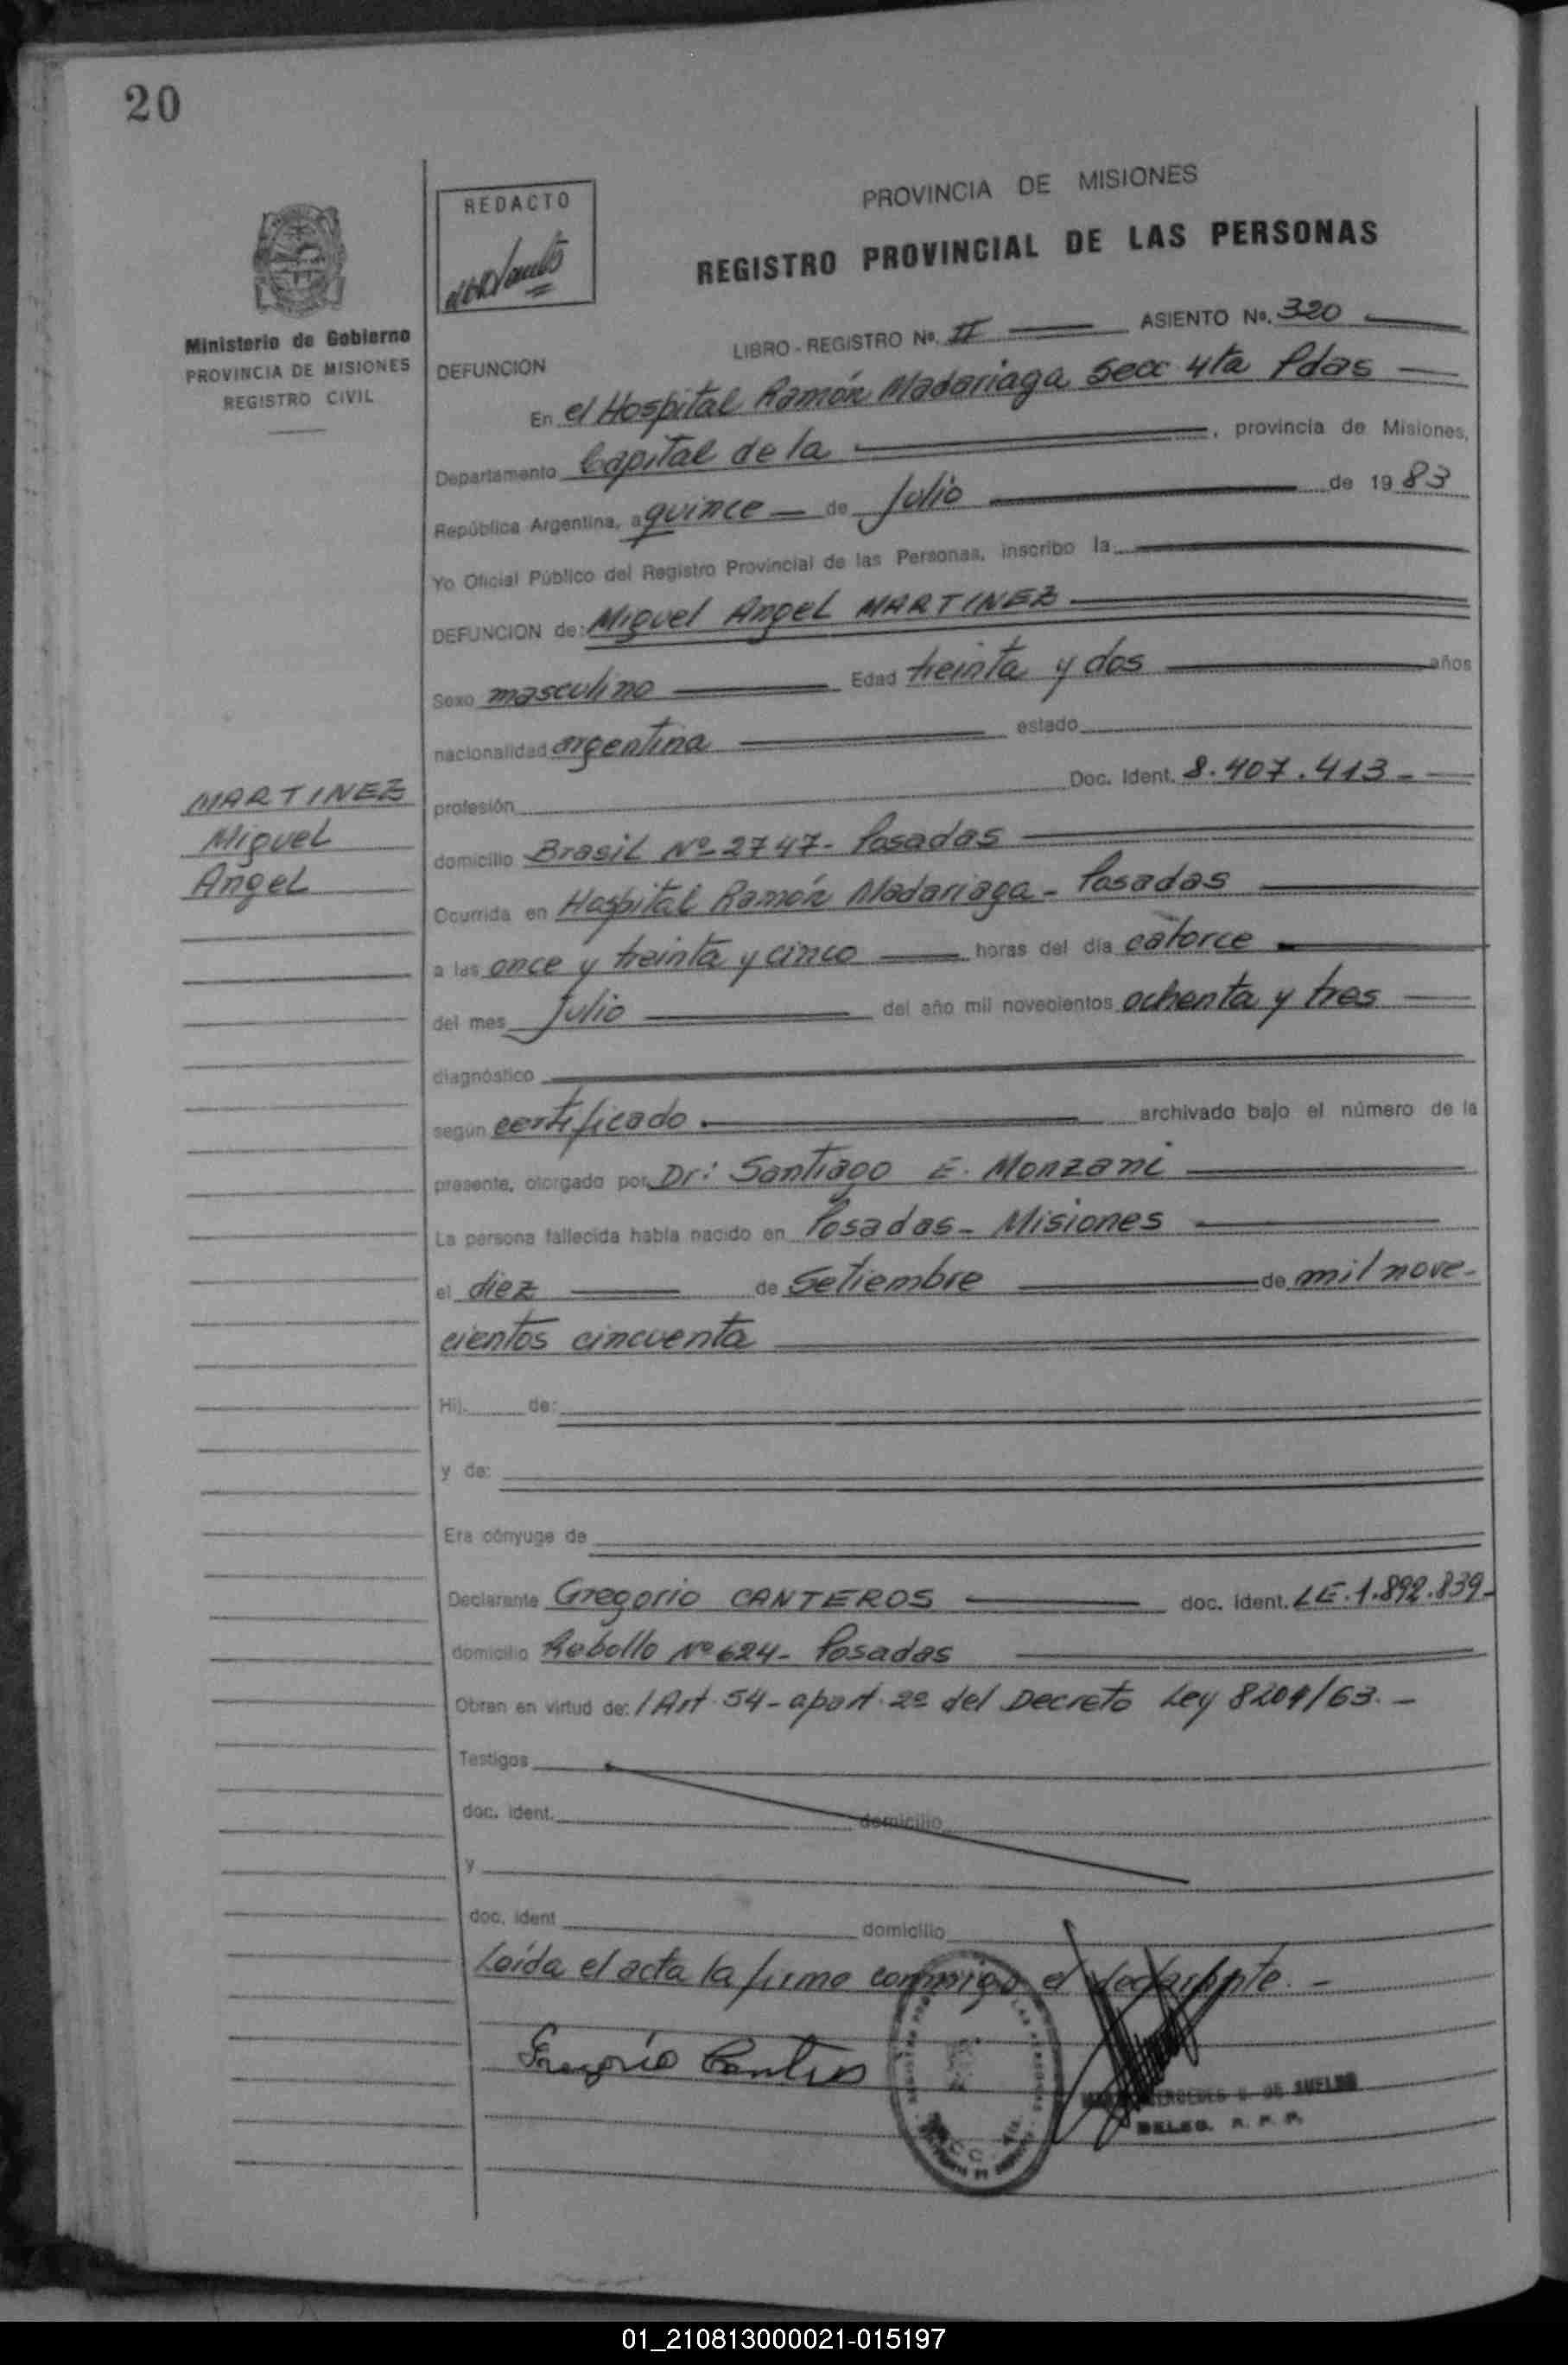 20
REDACTO
PROVINCIA DE MISIONES
REGISTRO PROVINCIAL DE LAS PERSONAS
Ministerio de Gobierno
PROVINCIA DE MISIONES
REGISTRO CIVIL
LIBRO - REGISTRO No. II ASIENTO No. 320
DEFUNCION
En el Hospital Ramón Madariaga Secc 4ta Pdas
Departamento Capital de la, provincia de Misiones,
República Argentina, a quince de Julio de 1983
Yo Oficial Público del Registro Provincial de las Personas, inscribo la
DEFUNCION de: Miguel Angel MARTINEZ
Sexo masculino Edad treinta y dos años
nacionalidad argentina estado
profesión Doc. Ident. 8.407.413-
MARTINEZ
Miguel
Angel
domicilio Brasil Nº 2747- Posadas
Ocurrida en Hospital Ramón Madariaga - Posadas
a las once y treinta y cinco horas del día catorce
del mes Julio del año mil novecientos ochenta y tres
diagnóstico
según certificado archivado bajo el número de la
presente, otorgado por Dr: Santiago E. Monzani
La persona fallecida había nacido en Posadas - Misiones
el diez de Setiembre de mil nove-
cientos cincuenta
Hij. de:
y de:
Era cónyuge de
Declarante Gregorio CANTEROS doc. ident. LE. 1.892.839-
domicilio Rebollo Nº 624- Posadas
Obran en virtud de: /Art. 54- apart. 2º del Decreto Ley 8204/63.-
Testigos
doc. ident. domicilio
y
doc. ident domicilio
Leída el acta la firma conmigo el declarante.-
Gregorio Canteros
MERCEDES DE SUELDO
DELEG. R. P. P.
01_210813000021-015197